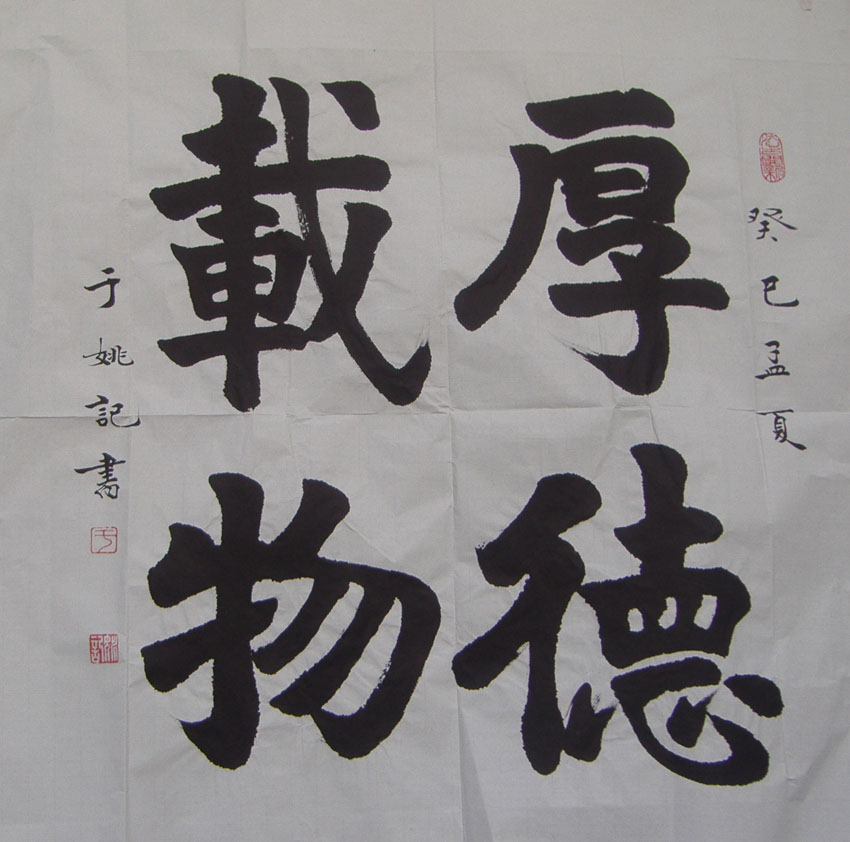 癸巳孟夏
厚德
載物
于姚記書